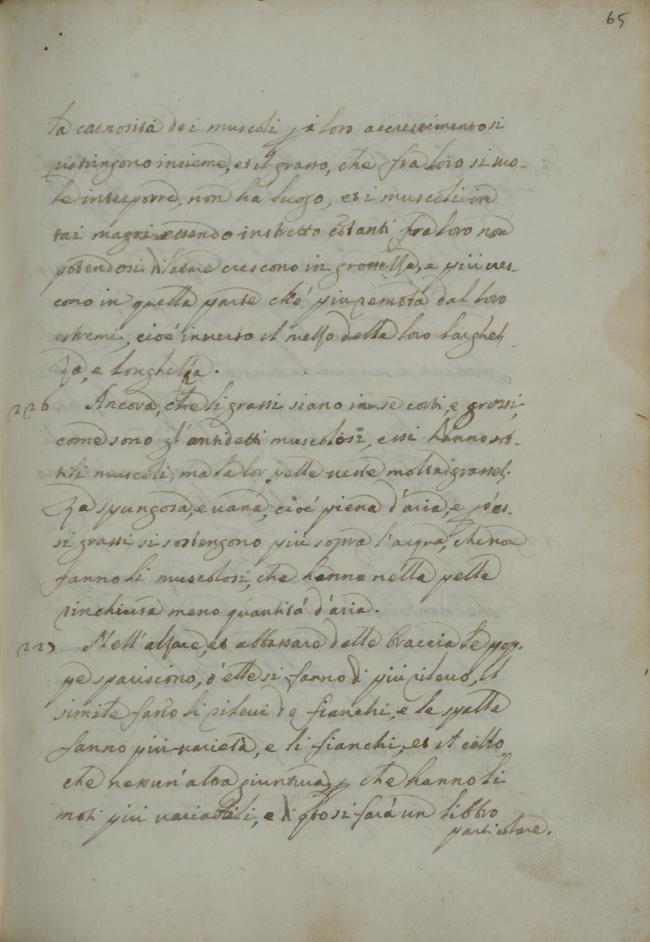 65
la carnosità dei muscoli p il loro accrescimento si
ristringono insieme, et il grasso, che fra loro si vuo-
le interporre, non ha luogo, et i muscoli in
tai magri essendo in stretto costanti fra loro non
potendosi dilatare crescono in grossezza, e più cres-
cono in quella parte ch'è più remota dal loro
estremi, cioè inverso il mezzo della loro larghez-
za, e longhezza.
226 Ancora, che li grassi siano in se corti, e grossi,
come sono gl'antidetti muscolosi, essi hanno sot-
tili muscoli, ma la lor pelle veste molta grassez-
za spungosa, e vana, cioè piena d'aria, e p'es-
si grassi si sostengono più sopra l'acqua, che non
fanno li muscolosi, che hanno nella pelle
rinchiusa meno quantità d'aria.
227 Nell'alzare, et abbassare delle braccia le pop-
pe spariscono, ò elle si fanno di più rilevo, Il
simile fano li rilevi de fianchi, e le spalle
fanno più varietà, e li fianchi, et il collo
che nessun'altra giuntura, p che hanno li
moti più variabili, e di qto si farà un libbro
particolare.